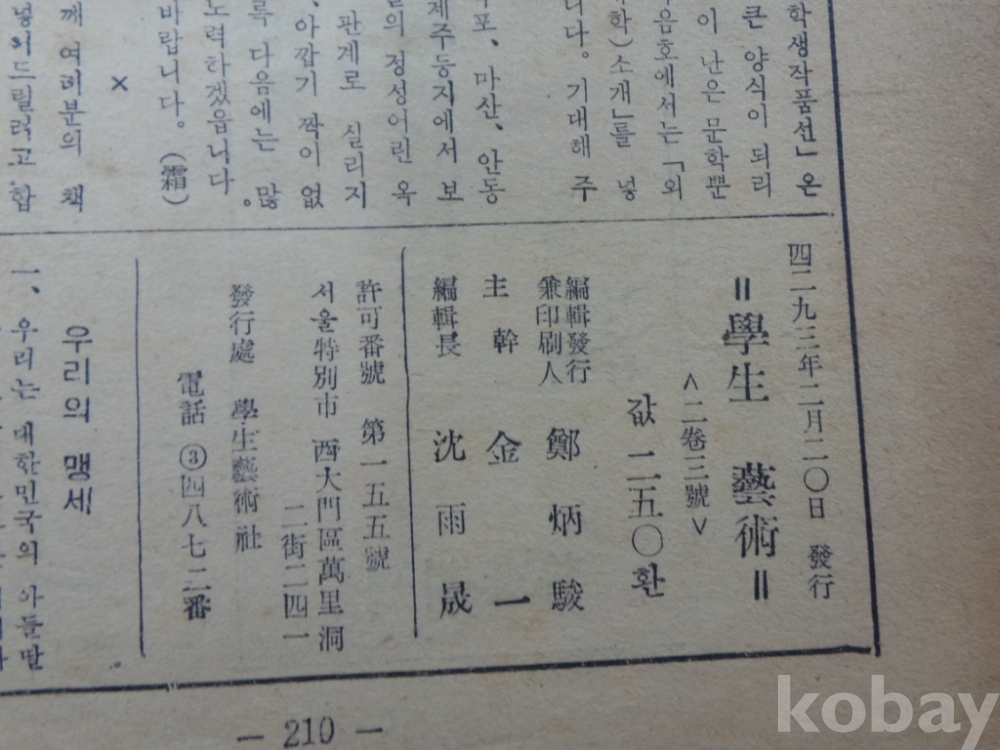 학생작품선」은
큰 양식이 되리
이 난은 문학뿐
음호에서는 「외
학)소개」를 넣
니다。 기대해 주
포、마산、안동
제주등지에서 보
의 정성어린 옥
판계로 실리지
、아깝기 짝이 없
록 다음에는 많
노력하겠읍니다。
바랍니다。 (霜)
×
께 여러분의 책
넣어드릴려고 합
四二九三年二月二〇日 發行
=學生 藝術=
<二卷三號>
값 二五〇환
編輯發行兼印刷人 鄭炳駿
主幹 金一
編輯長 沈雨晟
許可番號 第一五五號
서울特別市 西大門區萬里洞
二街二四一
發行處 學生藝術社
電話 ③四八七二番
우리의 맹세
一、우리는 대한민국의 아들딸
— 210 —
kobay